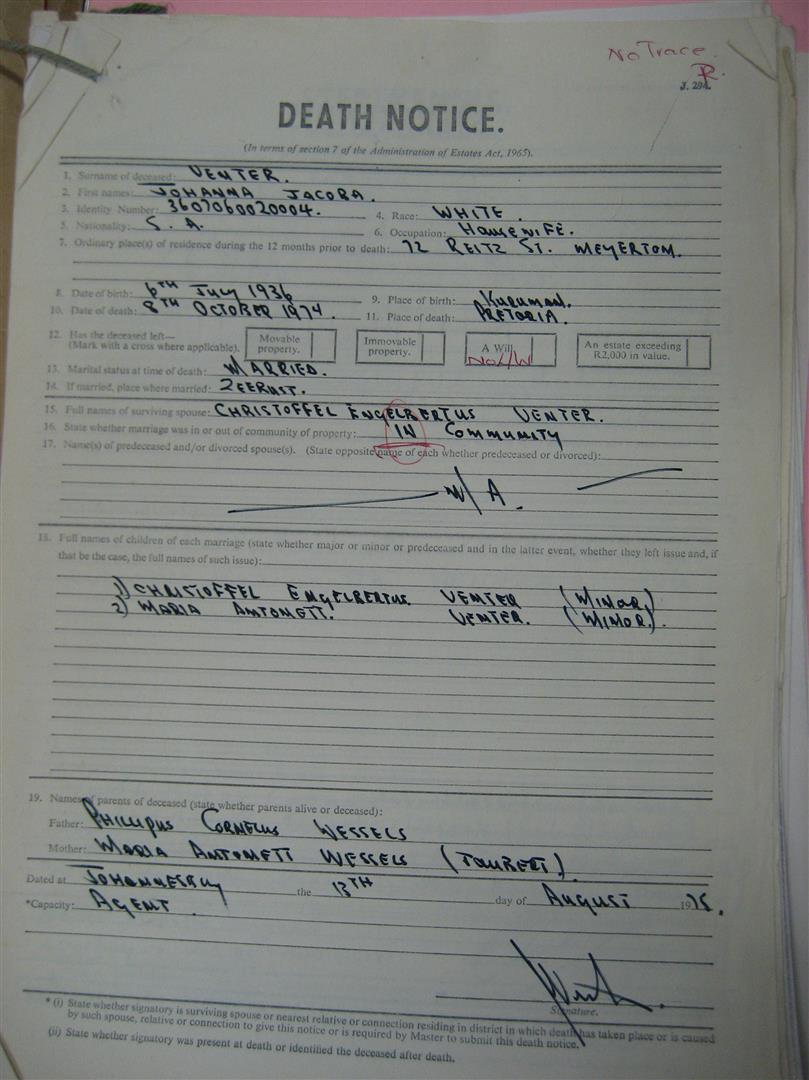 No Trace
J. 294.
DEATH NOTICE.
(In terms of section 7 of the Administration of Estates Act, 1965).
1. Surname of deceased: VENTER.
2. First names: JOHANNA JACOBA.
3. Identity Number: 3607060020004. 4. Race: WHITE.
5. Nationality: S. A. 6. Occupation: HOUSEWIFE.
7. Ordinary place(s) of residence during the 12 months prior to death: 72 REITZ ST. MEYERTON.
8. Date of birth: 6TH JULY 1936 9. Place of birth: KURUMAN.
10. Date of death: 8TH OCTOBER 1974 11. Place of death: PRETORIA.
12. Has the deceased left— (Mark with a cross where applicable). Movable property. Immovable property. A Will. An estate exceeding R2,000 in value.
13. Marital status at time of death: MARRIED.
14. If married, place where married: ZEERUST.
15. Full names of surviving spouse: CHRISTOFFEL ENGELBERTUS VENTER.
16. State whether marriage was in or out of community of property: IN COMMUNITY
17. Name(s) of predeceased and/or divorced spouse(s). (State opposite name of each whether predeceased or divorced):
N/A.
18. Full names of children of each marriage (state whether major or minor or predeceased and in the latter event, whether they left issue and, if
that be the case, the full names of such issue):
1) CHRISTOFFEL ENGELBERTUS VENTER (MINOR)
2) MARIA ANTONETT. VENTER. (MINOR).
19. Names of parents of deceased (state whether parents alive or deceased):
Father: PHILLIPUS CORNELUS WESSELS
Mother: MARIA ANTONETT WESSELS (JOUBERT).
Dated at JOHANNESBURG the 13TH day of AUGUST 1975.
*Capacity: AGENT.
Signature.
* (i) State whether signatory is surviving spouse or nearest relative or connection residing in district in which death has taken place or is caused
by such spouse, relative or connection to give this notice or is required by Master to submit this death notice.
(ii) State whether signatory was present at death or identified the deceased after death.